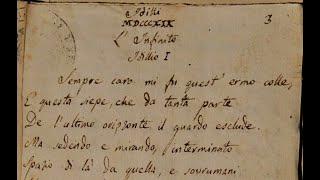 Idilli
MDCCCXIX
3
L'Infinito
Idillio I
Sempre caro mi fu quest'ermo colle,
E questa siepe, che da tanta parte
De l'ultimo orizzonte il guardo esclude.
Ma sedendo e mirando, interminato
Spazio di là da quella, e sovrumani